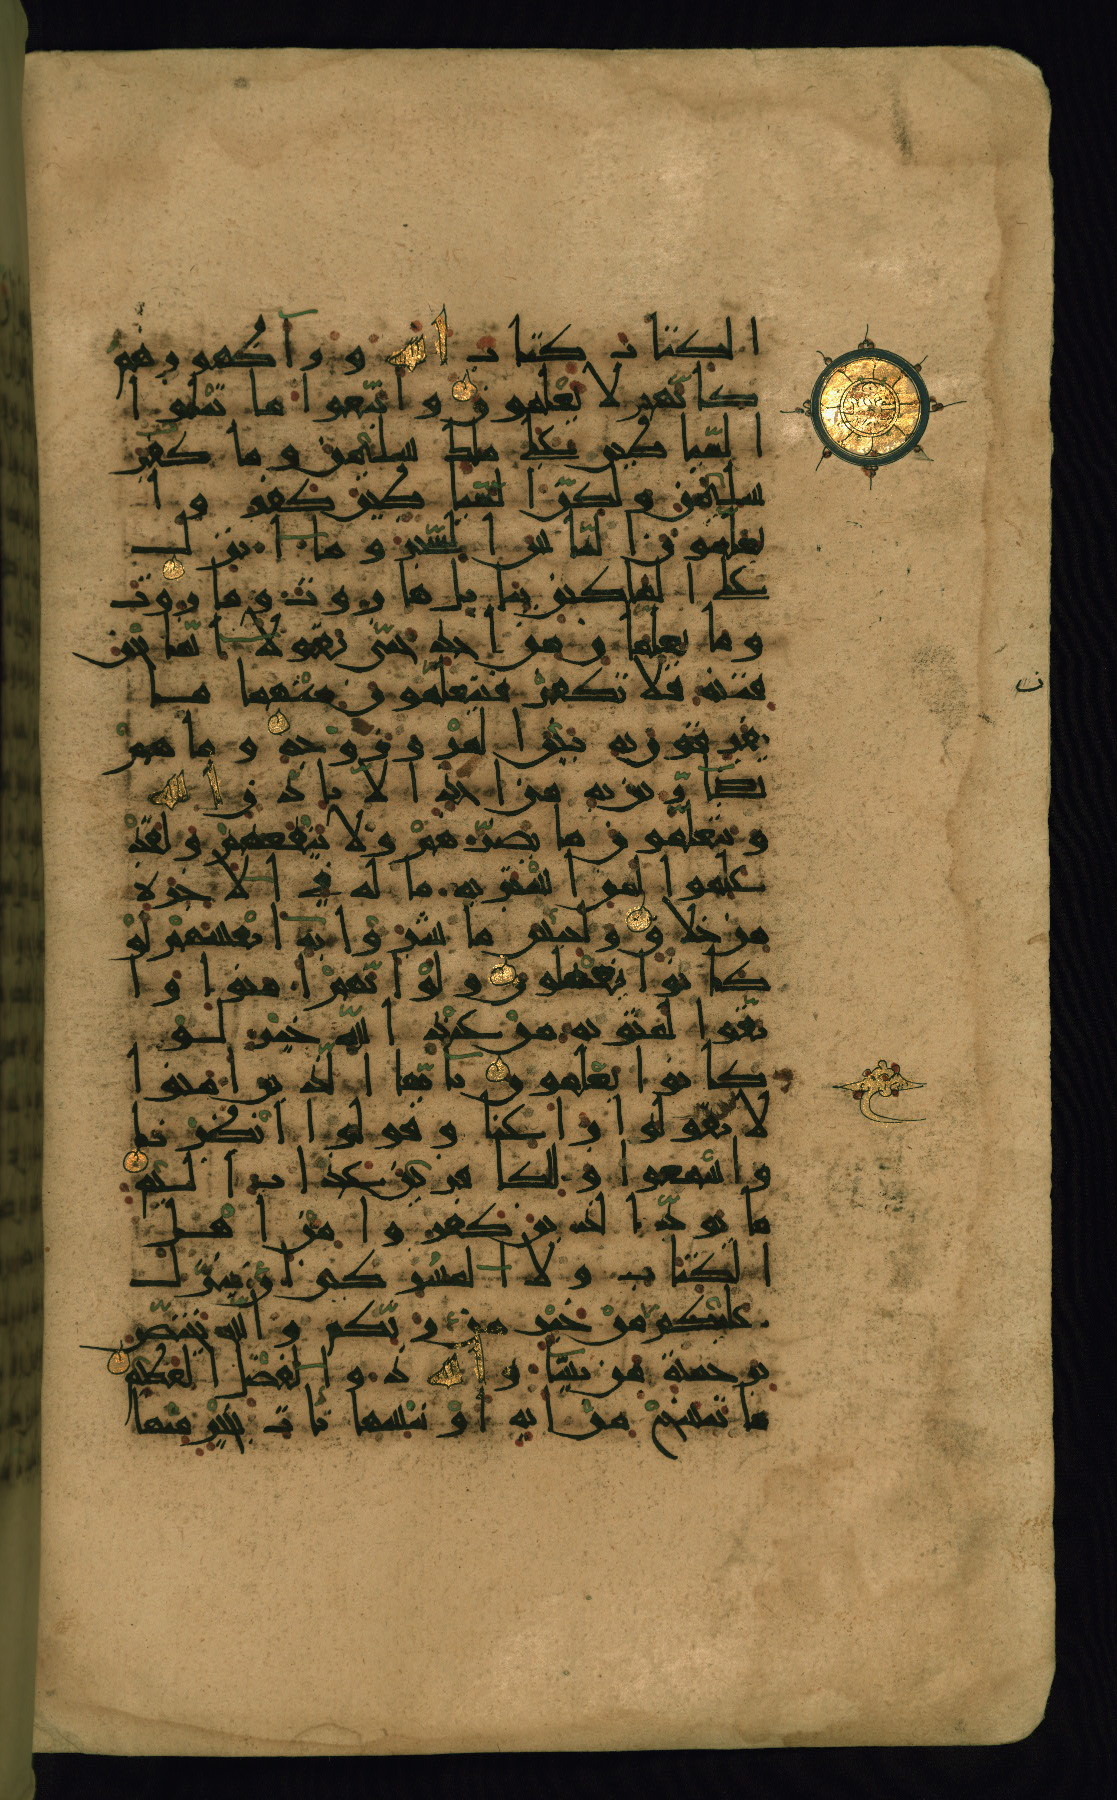 الكتاب كتاب الله وراء ظهورهم
كأنهم لا يعلمون واتبعوا ما تتلوا
الشياطين على ملك سليمن وما كفر
سليمن ولكن الشياطين كفروا
يعلمون الناس السحر وما أنزل
على الملكين ببابل هاروت وماروت
وما يعلمان من أحد حتى يقولا إنما نحن
فتنة فلا تكفر فيتعلمون منهما ما
يفرقون به بين المرء وزوجه وما هم
بضارين به من أحد إلا بإذن الله
ويتعلمون ما يضرهم ولا ينفعهم ولقد
علموا لمن اشتريه ما له في الآخرة
من خلاق ولبئس ما شروا به أنفسهم لو
كانوا يعلمون ولو أنهم آمنوا وا
تقوا لمثوبة من عند الله خير لو
كانوا يعلمون يا أيها الذين آمنوا
لا تقولوا راعنا وقولوا انظرنا
واسمعوا وللكافرين عذاب أليم
ما يود الذين كفروا من أهل
الكتاب ولا المشركين أن ينزل
عليكم من خير من ربكم والله يختص
برحمته من يشاء والله ذو الفضل العظيم
ما ننسخ من آية أو ننسها نأت بخير منها